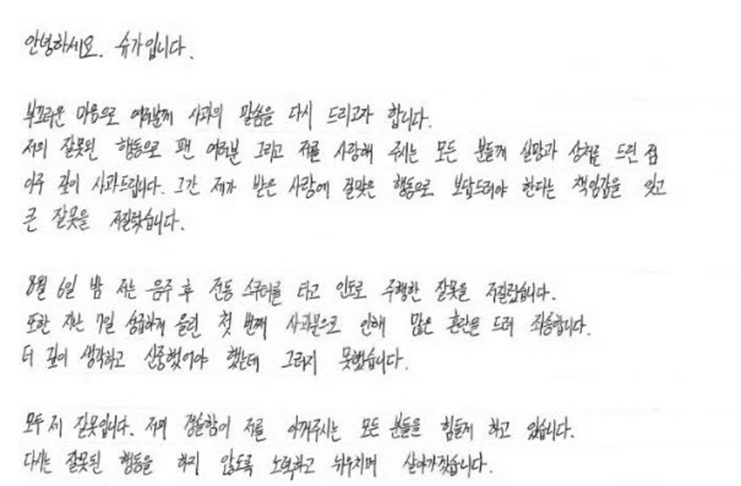 안녕하세요. 슈가입니다.
부끄러운 마음으로 여러분께 사과의 말씀을 다시 드리고자 합니다.
저의 잘못된 행동으로 팬 여러분 그리고 저를 사랑해 주시는 모든 분들께 실망과 상처를 드린 점
아주 깊이 사과드립니다. 그간 제가 받은 사랑에 걸맞은 행동으로 보답드려야 한다는 책임감을 잊고
큰 잘못을 저질렀습니다.
8월 6일 밤 저는 음주 후 전동 스쿠터를 타고 인도로 주행한 잘못을 저질렀습니다.
또한 지난 7일 성급하게 올린 첫 번째 사과문으로 인해 많은 혼란을 드려 죄송합니다.
더 깊이 생각하고 신중했어야 했는데 그러지 못했습니다.
모두 제 잘못입니다. 저의 경솔함이 저를 아껴주시는 모든 분들을 힘들게 하고 있습니다.
다시는 잘못된 행동을 하지 않도록 노력하고 뉘우치며 살아가겠습니다.